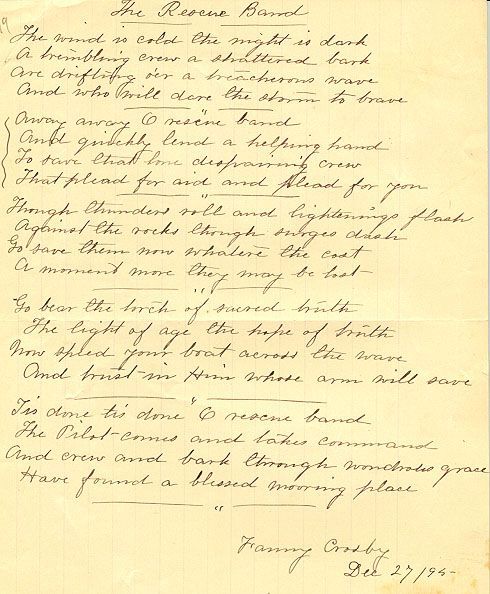 19
The Rescue Band
The wind is cold the night is dark
A trembling crew a shattered bark
Are drifting o'er a treacherous wave
And who will dare the storm to brave
"
Away away O rescue band
And quickly lend a helping hand
To save that lone despairing crew
That plead for aid and plead for you
"
Though thunders roll and lightenings flash
Against the rocks though surges dash
Go save them now whate'er the cost
A moment more they may be lost
"
Go bear the torch of sacred truth
The light of age the hope of truth
Now speed your boat across the wave
And trust in Him whose arm will save
"
Tis done tis done O rescue band
The Pilot comes and takes command
And crew and bark through wondrous grace
Have found a blessed mooring place
"
Fanny Crosby
Dec 27/95-